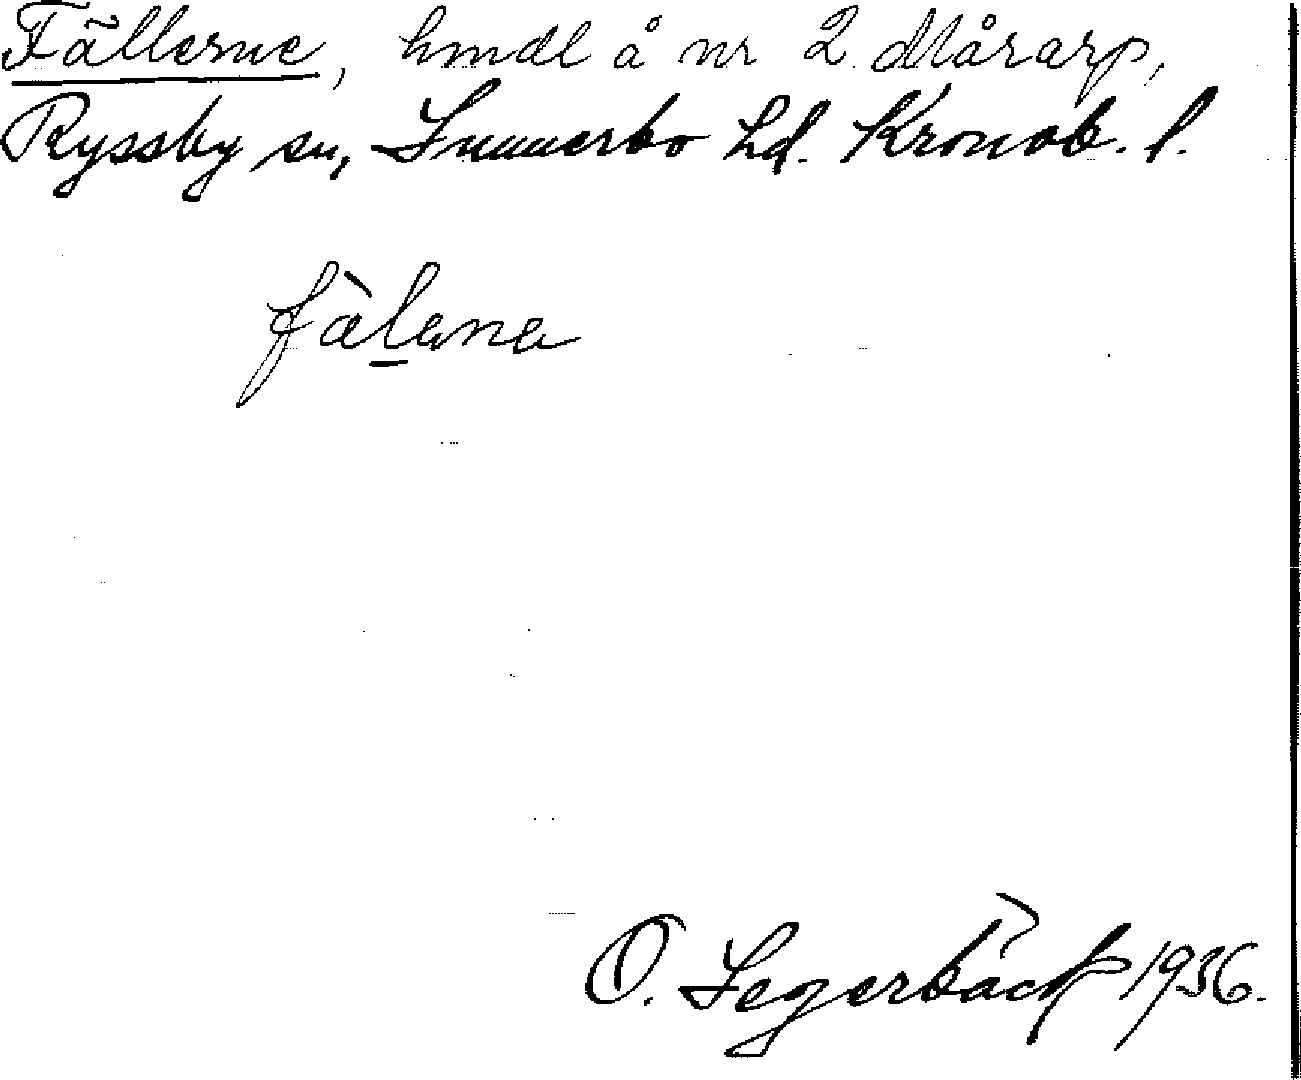 Fällerne, hmdl å nr 2 Mårarp,
Ryssby sn, Sunnerbo hd. Kronob. l.
fàlana
O. Segerbäck 1936.